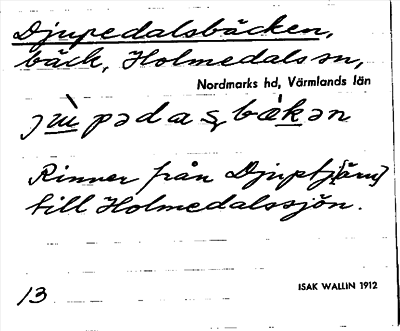 Djupedalsbäcken,
bäck, Holmedals sn,
Nordmarks hd, Värmlands län
Rinner från Djuptj[ärn]
till Holmedalssjön.
13
ISAK WALLIN 1912